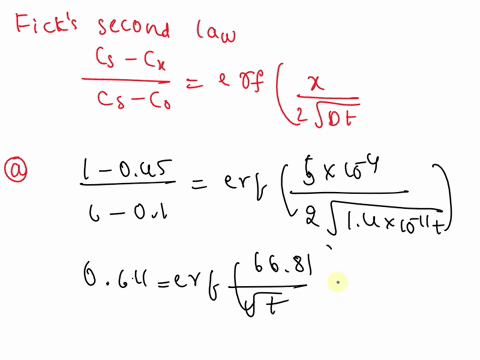 Fick's second law
Cs - Cx / Cs - Co = erf ( x / 2√Dt
ⓐ 1 - 0.45 / 1 - 0.1 = erf ( 5 × 10⁻⁴ / 2√1.4×10⁻¹¹t )
0.611 = erf ( 66.81 / √t